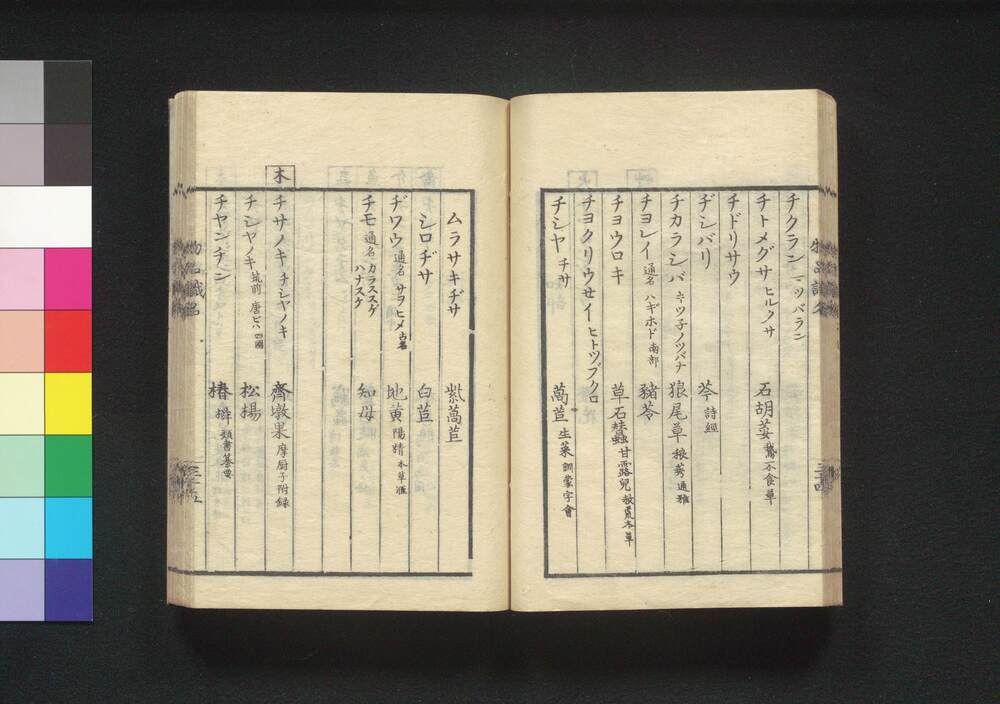 チクラン 一ツバラン
チトメグサ ヒルクサ 石胡荽 鵞不食草
チドリサウ
ヂシバリ 芩 詩經
チカラシバ キツ子ノツバナ 狼尾草 稂莠 通雅
チヨレイ 通名 ハギホド 南部 豬苓
チョウロキ 草石蠶 甘露兒 救荒本草
チヨクリウセイ ヒトツブクロ
チシヤ チサ 萵苣 生菜 訓蒙字會
三十四
ムラサキヂサ 紫萵苣
シロヂサ 白苣
ヂワウ 通名 サヲヒメ 古名 地黄 陽精 本草滙
チモ 通名 カラススゲ ハナスケ 知母
木
チサノキ チシヤノキ 齊墩果 摩厨子附録
チシヤノキ 筑前 唐ビハ 四國 松楊
チヤンチン 椿 類書纂要
物品識名